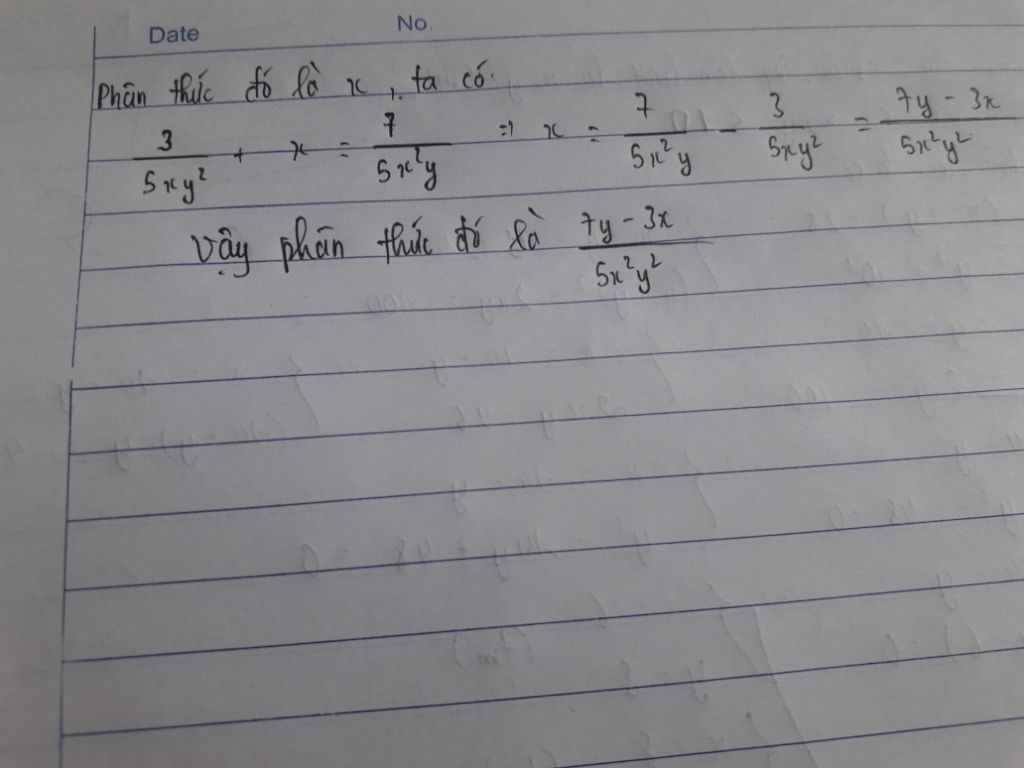 Date No.
Phân thức đó là x, ta có:
3/(5xy²) + x = 7/(5x²y) => x = 7/(5x²y) - 3/(5xy²) = (7y - 3x)/(5x²y²)
Vậy phân thức đó là (7y - 3x)/(5x²y²)